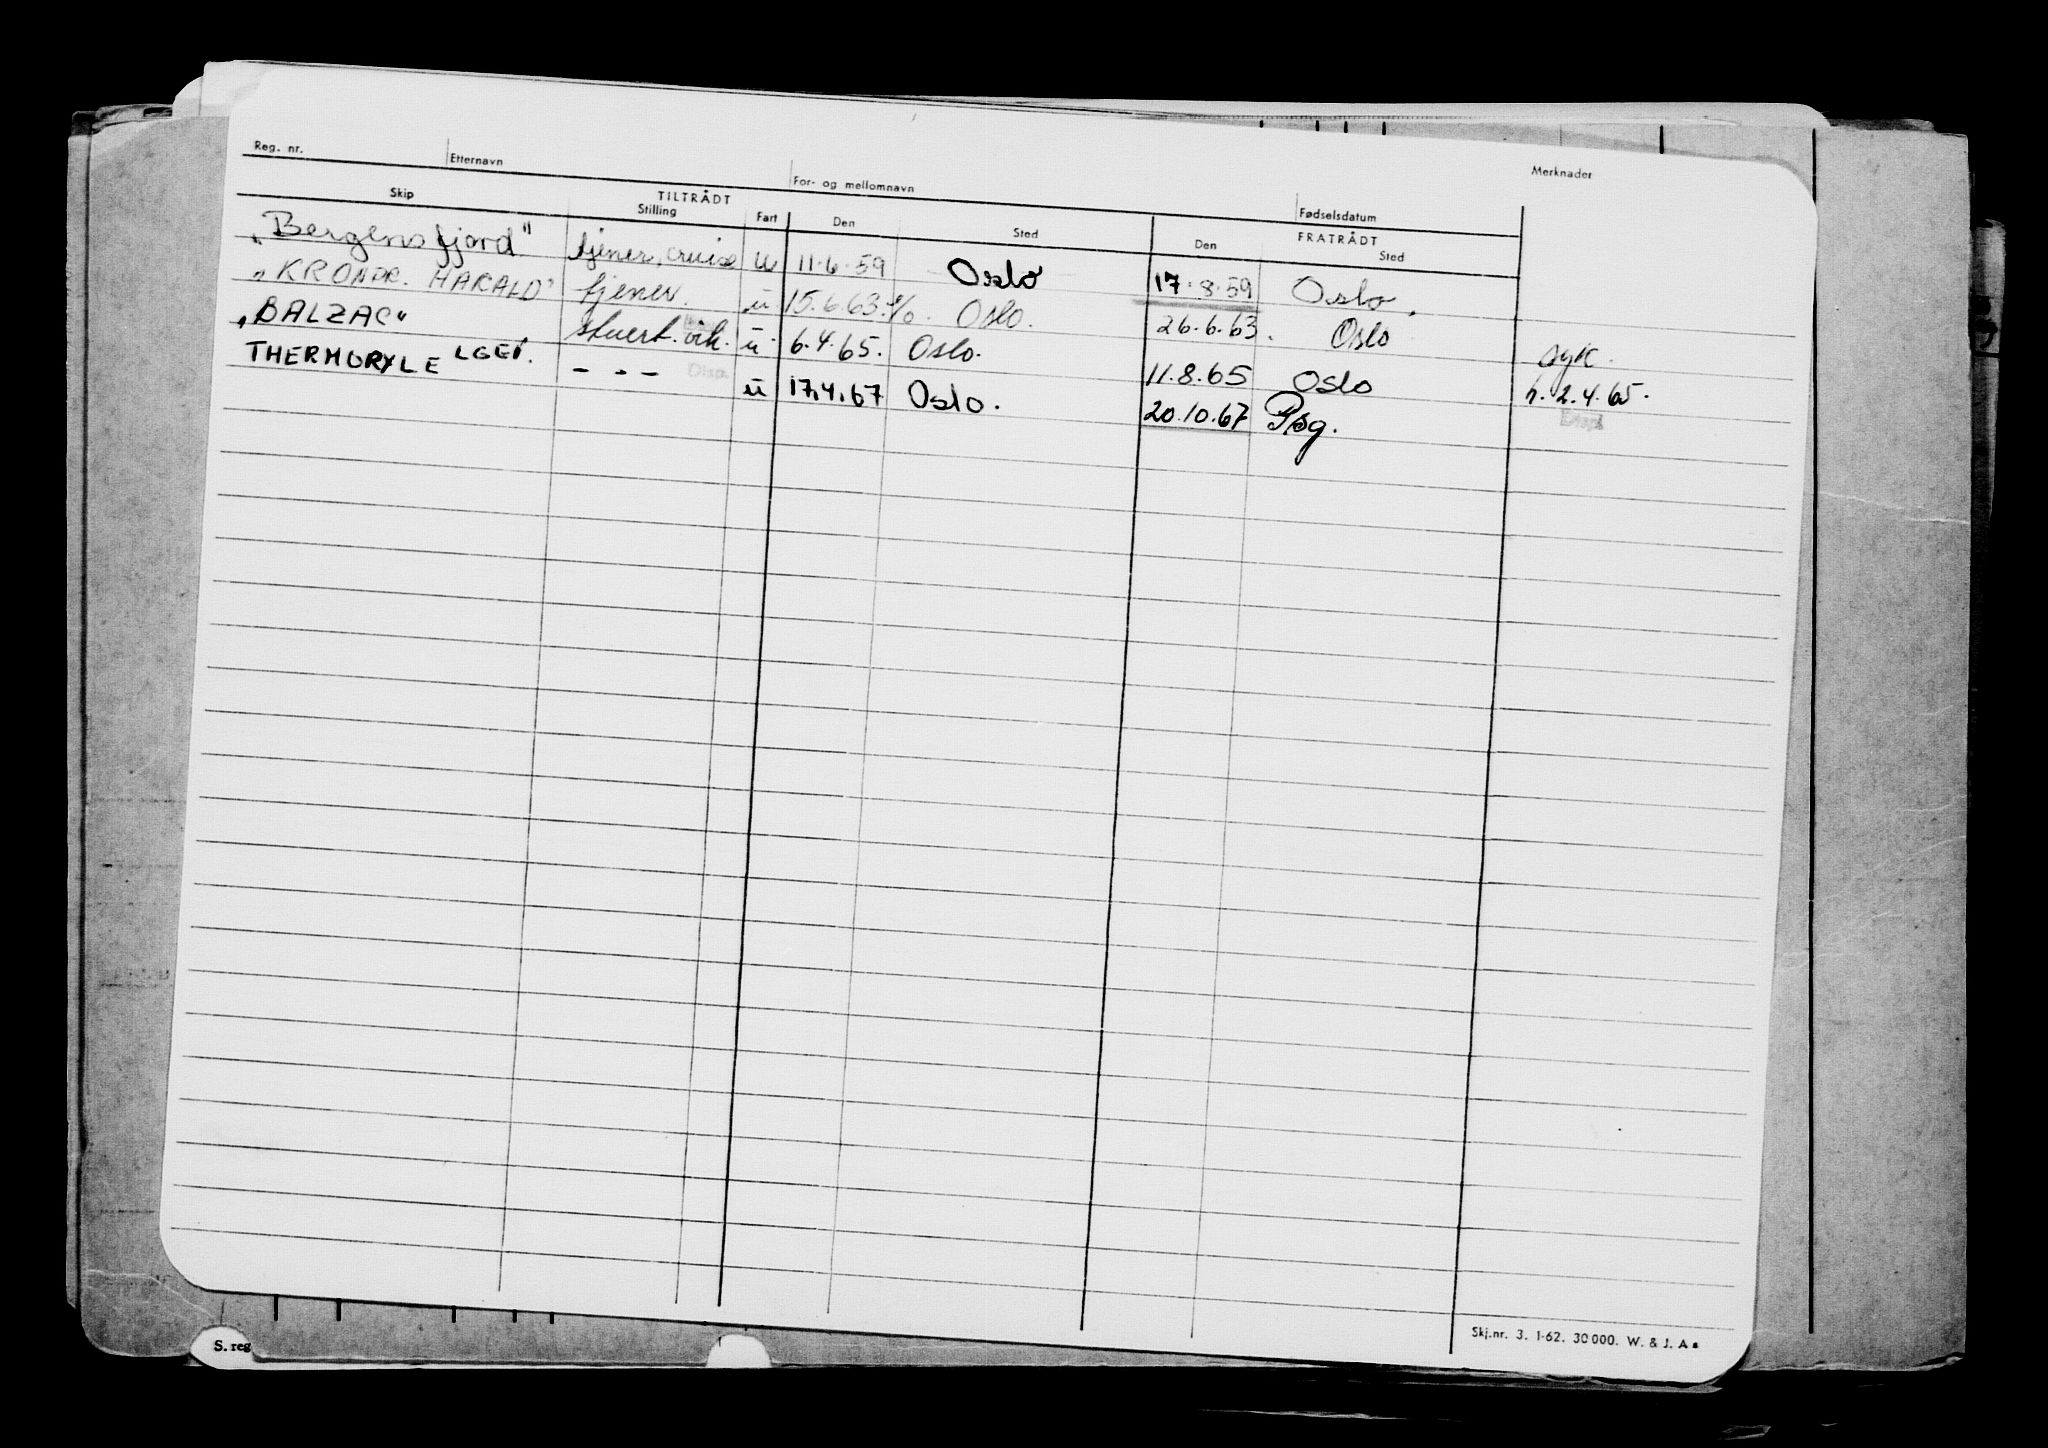 Reg. nr. Etternavn For- og mellomnavn Fødselsdatum Merknader
TILTRÅDT FRATRÅDT
Skip Stilling Fart Den Sted Den Sted
„Bergensfjord" tjener, cruise u 11.6.59 Oslo 17.8.59 Oslo.
„KRONPR. HARALD" tjener. ü 15.6.63. Oslo. 26.6.63. Oslo syk.
„BALZAC" stuert. vik. ü 6.4.65. Oslo. 11.8.65 Oslo h. 2.4.65.
Disp.
THERMOPYLE ü 17.4.67 Oslo. 20.10.67 Psg.
Disp.
Skj.nr. 3. 1-62. 30 000. W. & J. A s
S. reg